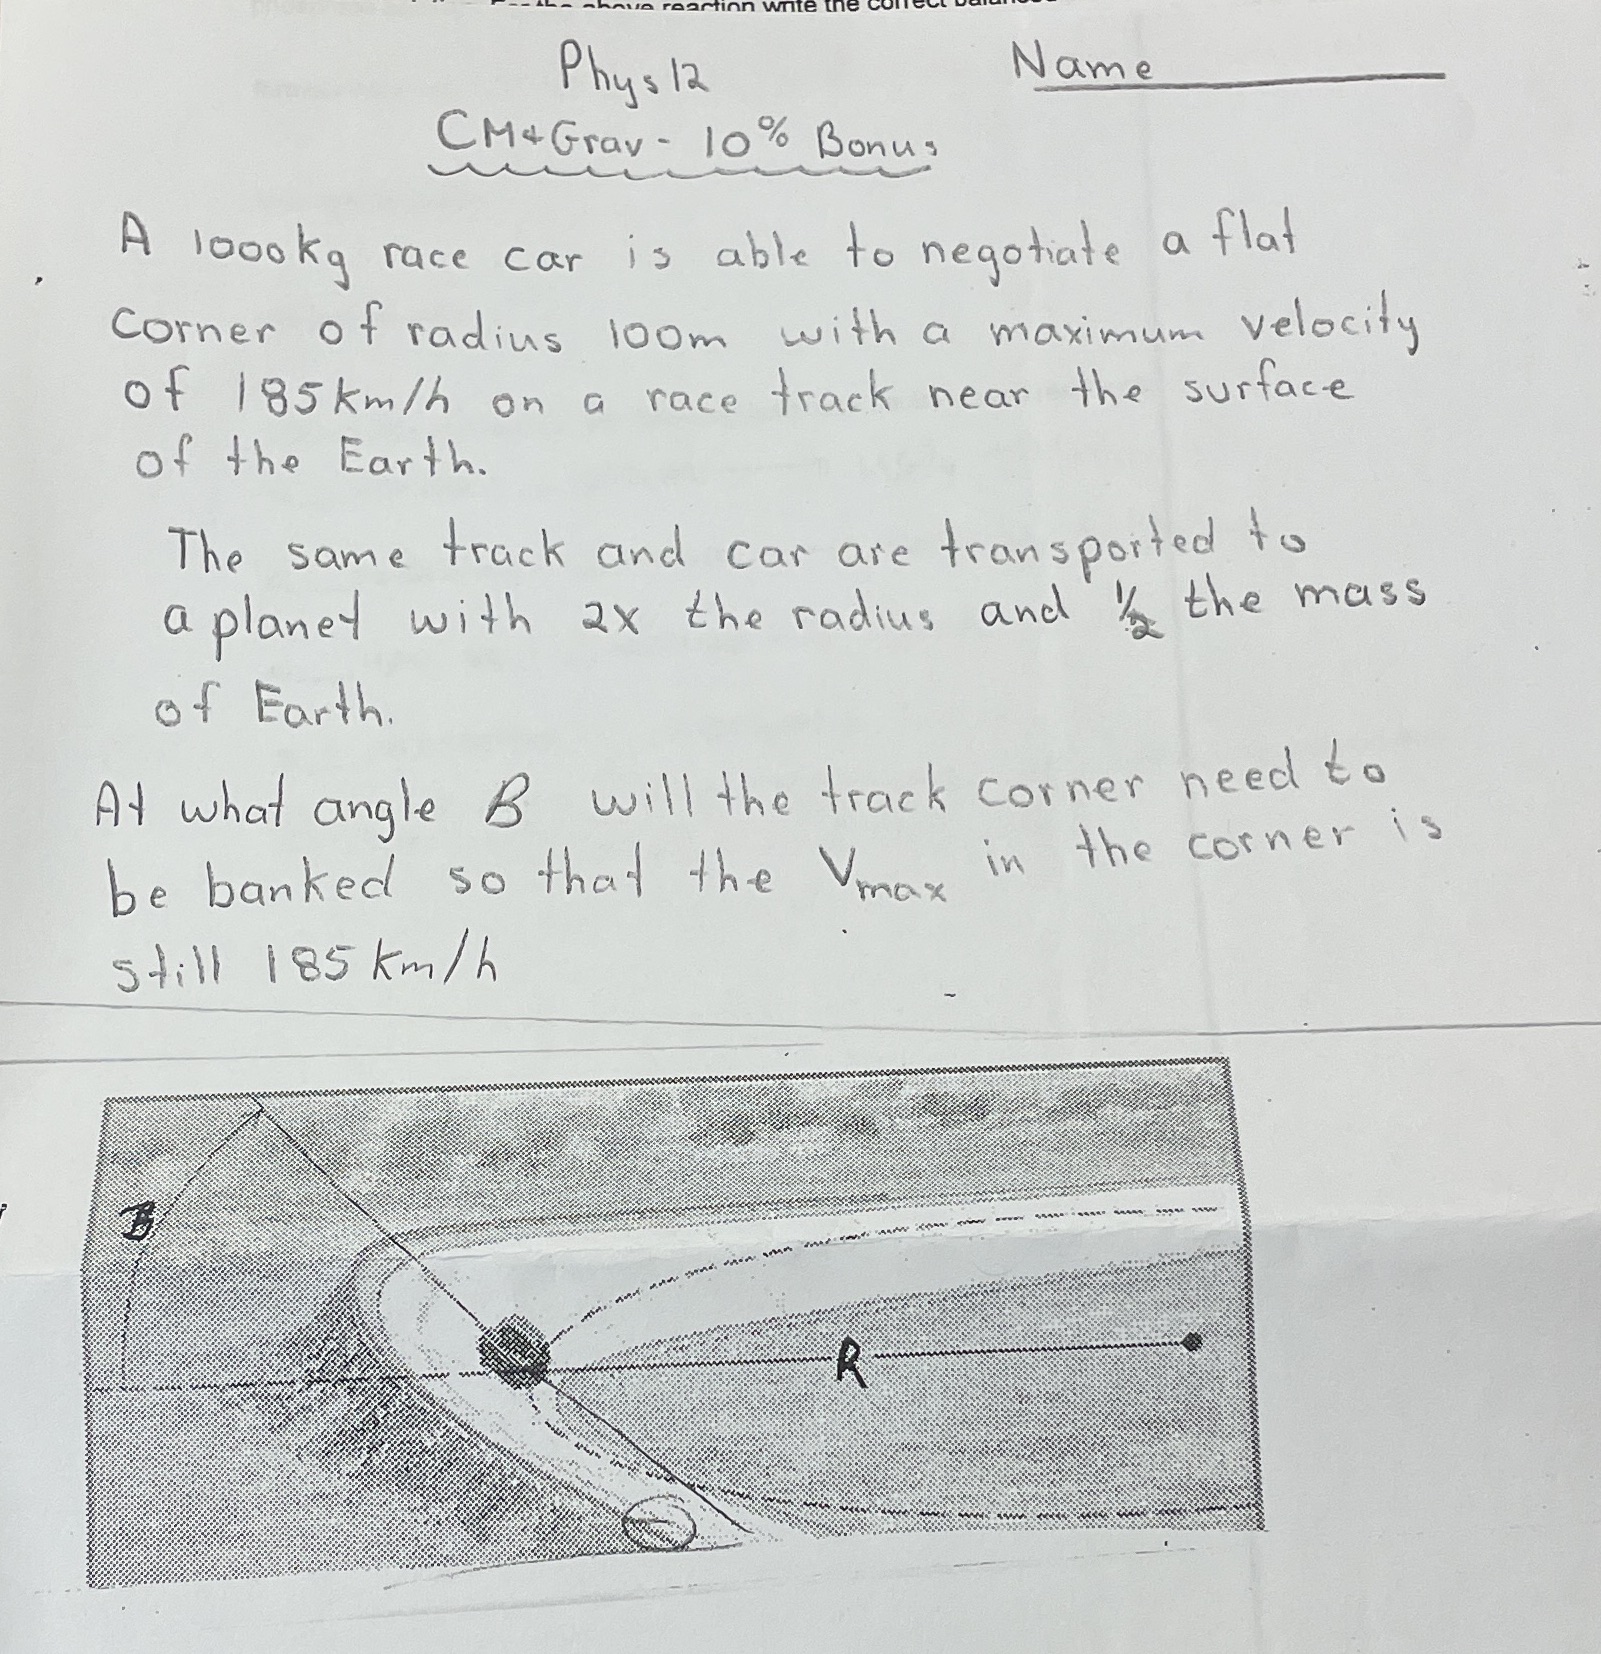 the above reaction write the correct
Phys 12
Name
CM+Grav - 10% Bonus
A 1000kg race car is able to negotiate a flat
corner of radius 100m with a maximum velocity
of 185km/h on a race track near the surface
of the Earth.
The same track and car are transported to
a planet with 2x the radius and 1/2 the mass
of Earth.
At what angle B will the track corner need to
be banked so that the Vmax in the corner is
still 185 km/h
B
R